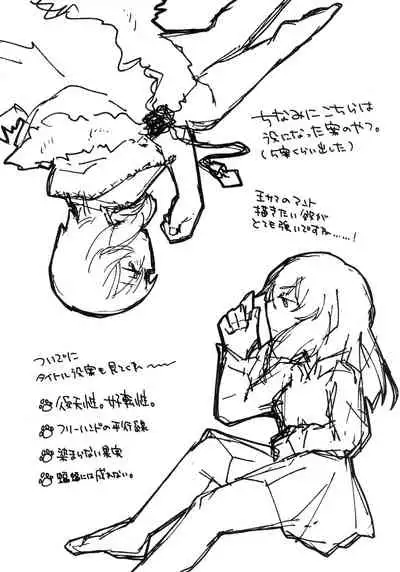 ちなみにこちらは
没になった案のやつ。
(5案くらい出した)
描きたい欲が
とても強いですね……!
ついでに
タイトル没案も見てくれ〜〜
後天性。好事性。
フリーハンドの平行線
染まらない果実
蝙蝠には成れない。